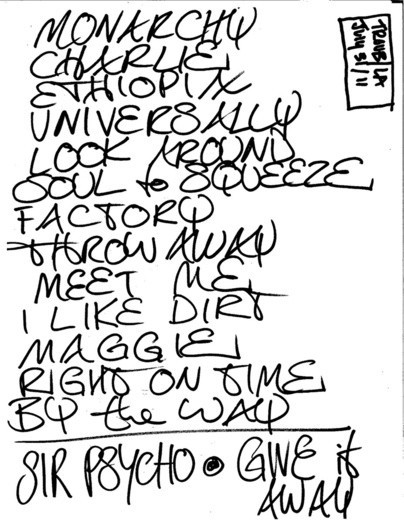 MONARCHY
CHARLIE
ETHIOPIA
UNIVERSALLY
LOOK AROUND
SOUL to SQUEEZE
FACTORY
THROW AWAY
MEET ME
I LIKE DIRT
MAGGIE
RIGHT ON TIME
BY the WAY
SIR PSYCHO • GIVE it
AWAY
TRAUB LA
July 31/11